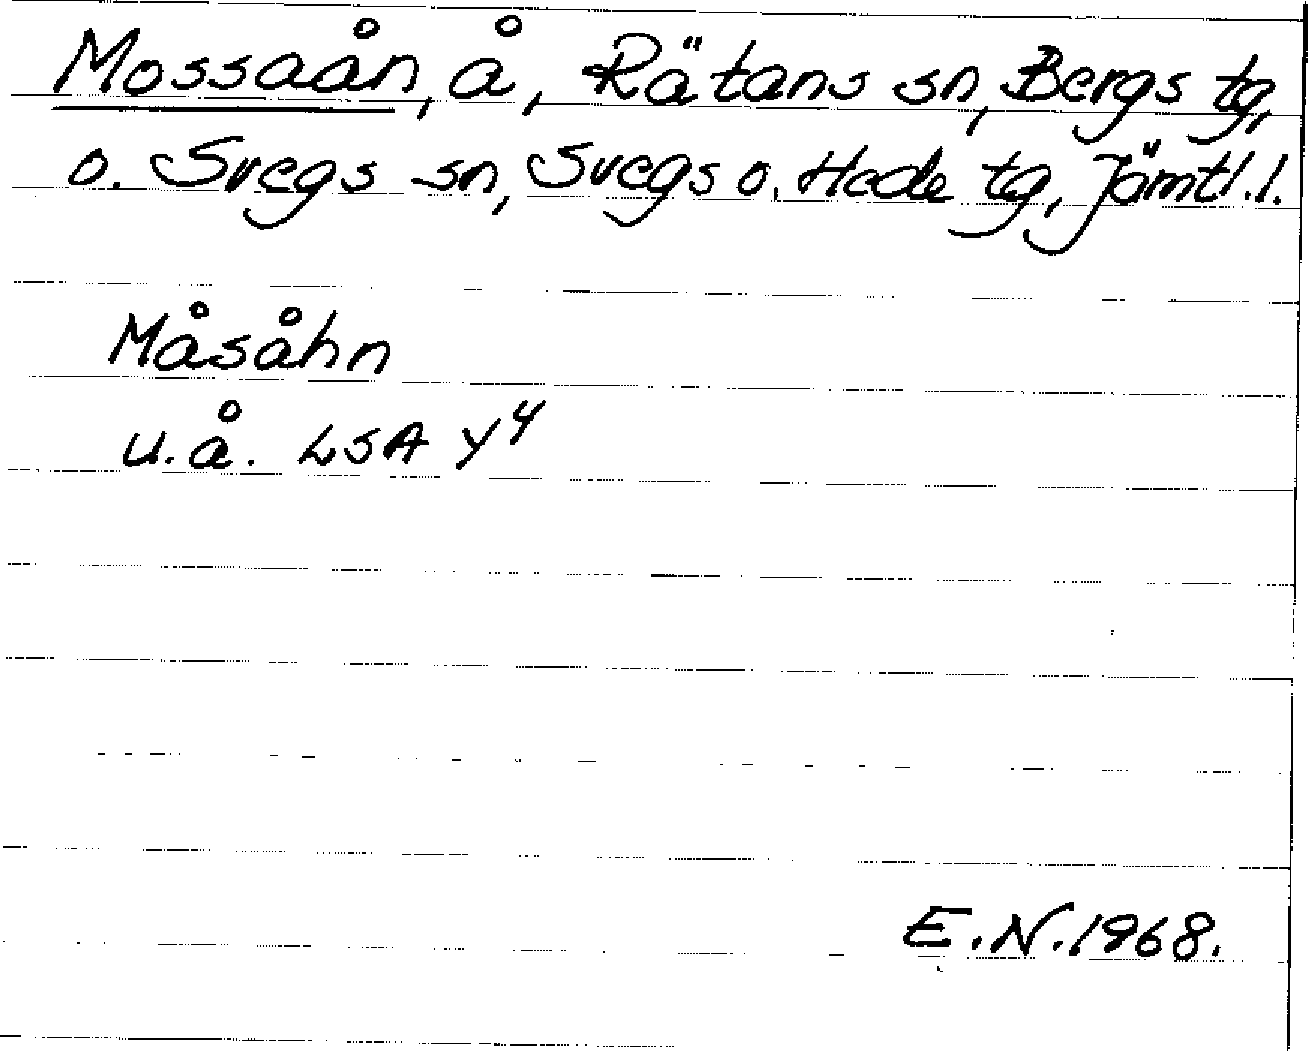 Mossaån, å, Rätans sn, Bergs tg,
o. Svegs sn, Svegs o. Hede tg, Jämtl.l.
Måsåhn
u.å. LSA Y4
E.N. 1968.